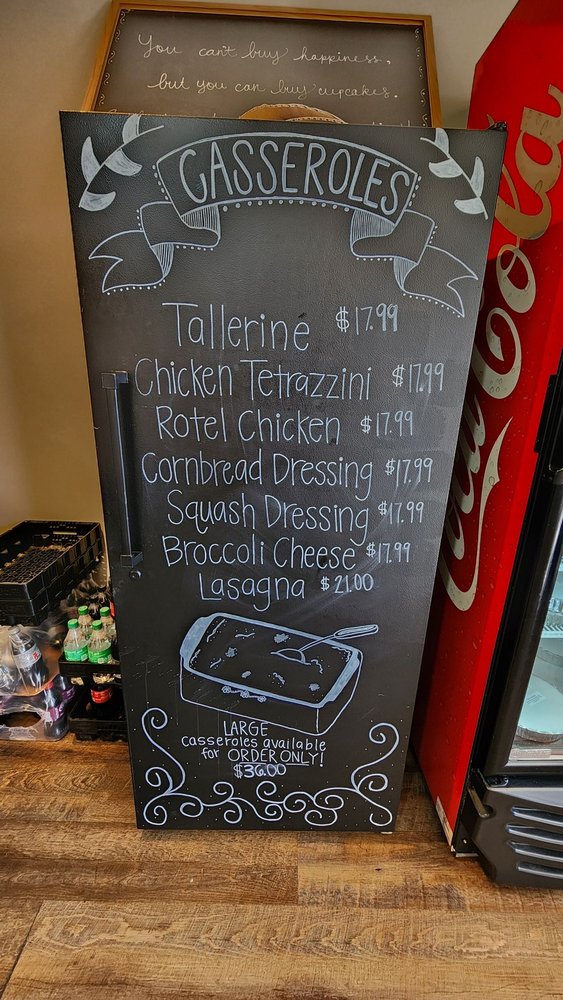 You can't buy happiness,
but you can buy cupcakes.
CASSEROLES
Tallerine $17.99
Chicken Tetrazzini $17.99
Rotel Chicken $17.99
Cornbread Dressing $17.99
Squash Dressing $17.99
Broccoli Cheese $17.99
Lasagna $21.00
LARGE
casseroles available
for ORDER ONLY!
$36.00
Coca-Cola